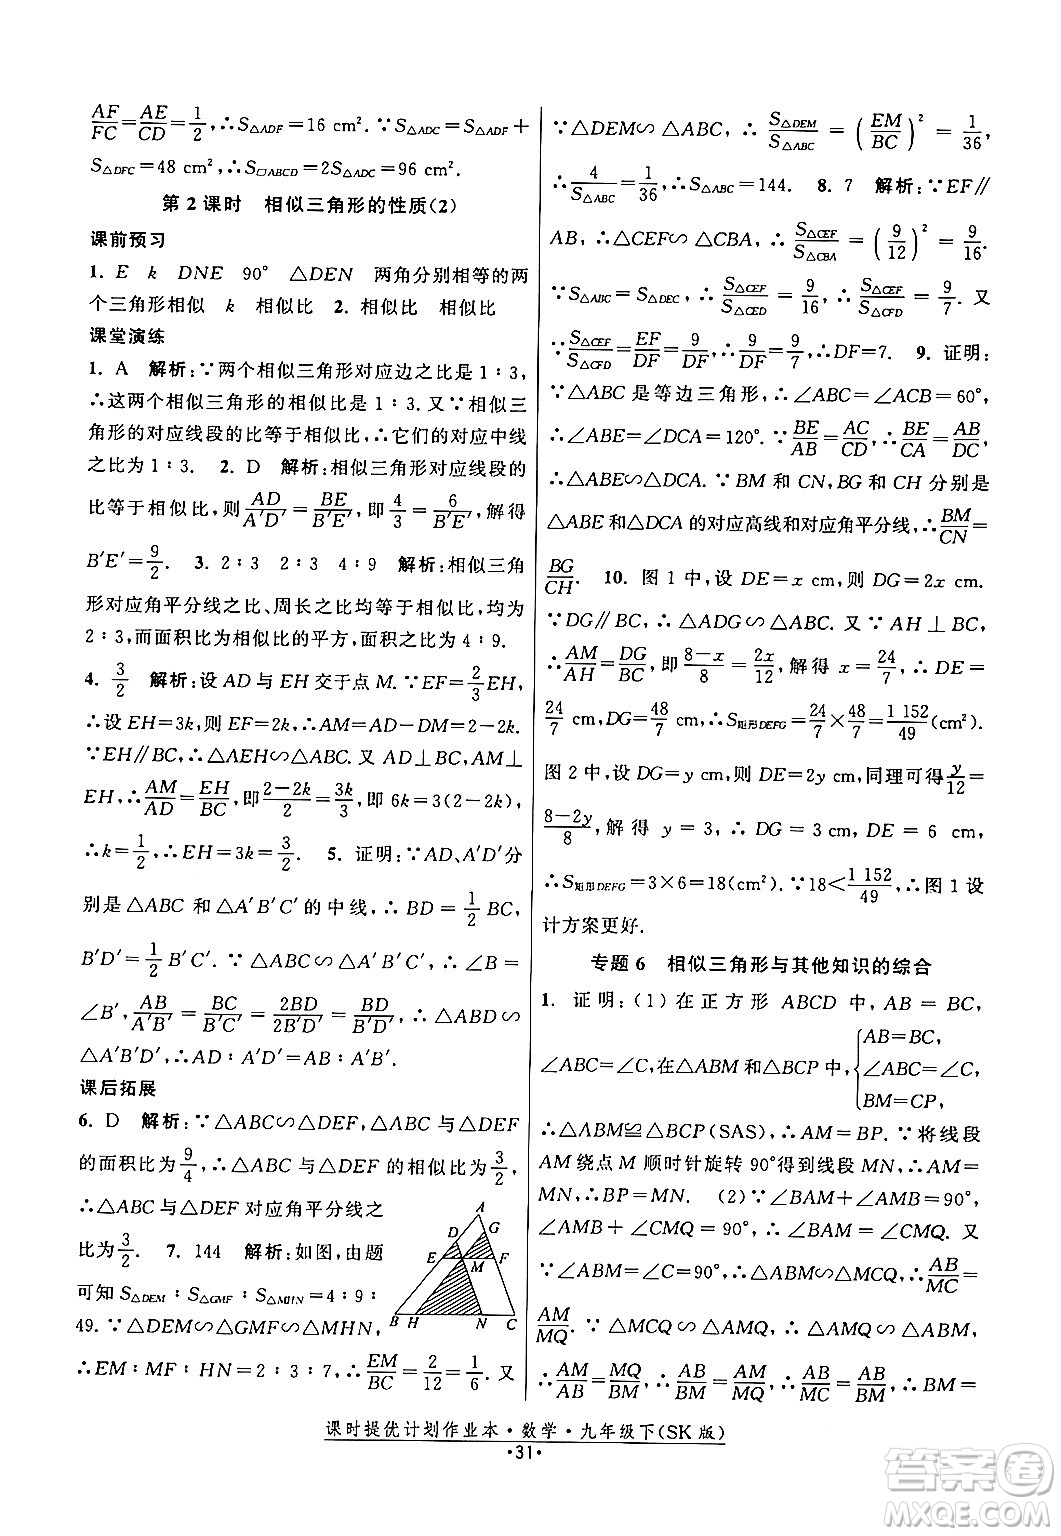 AF/FC=AE/CD=1/2,∴S△ADF=16 cm².∵S△ADC=S△ADF+
S△DFC=48 cm²,∴S□ABCD=2S△ADC=96 cm².
第2课时 相似三角形的性质(2)
课前预习
1. E k DNE 90° △DEN 两角分别相等的两
个三角形相似 k 相似比 2. 相似比 相似比
课堂演练
1. A 解析:∵两个相似三角形对应边之比是1∶3,
∴这两个相似三角形的相似比是1∶3.又∵相似三
角形的对应线段的比等于相似比,∴它们的对应中线
之比为1∶3. 2. D 解析:相似三角形对应线段的
比等于相似比,则AD/A′D′=BE/B′E′,即4/3=6/B′E′,解得
B′E′=9/2. 3. 2∶3 2∶3 4∶9 解析:相似三角
形对应角平分线之比、周长之比均等于相似比,均为
2∶3,而面积比为相似比的平方,面积之比为4∶9.
4. 3/2 解析:设AD与EH交于点M.∵EF=2/3EH,
∴设EH=3k,则EF=2k,∴AM=AD−DM=2−2k.
∵EH∥BC,∴△AEH∽△ABC.又AM⊥
EH,∴AM/AD=EH/BC,即(2−2k)/2=3k/3,即6k=3(2−2k),
∴k=1/2,∴EH=3k=3/2. 5. 证明:∵AD、A′D′分
别是△ABC和△A′B′C′的中线,∴BD=1/2BC,
B′D′=1/2B′C′.∵△ABC∽△A′B′C′,∴∠B=
∠B′,AB/A′B′=BC/B′C′=2BD/2B′D′=BD/B′D′,∴△ABD∽
△A′B′D′,∴AD∶A′D′=AB∶A′B′.
课后拓展
6. D 解析:∵△ABC∽△DEF,△ABC与△DEF
的面积比为9/4,∴△ABC与△DEF的相似比为3/2,
∴△ABC与△DEF对应角平分线之
比为3/2. 7. 144 解析:如图,由题
可知S△DEM∶S△GMF∶S△MHN=4∶9∶
49.∵△DEM∽△GMF∽△MHN,
∴EM∶MF∶HN=2∶3∶7,∴EM/BC=2/12=1/6.又
A
D G
E M F
B H N C
∵△DEM∽△ABC,∴S△DEM/S△ABC=(EM/BC)²=1/36,
∴4/S△ABC=1/36,∴S△ABC=144. 8. 7 解析:∵EF∥
AB,∴△CEF∽△CBA,∴S△CEF/S△CBA=(9/12)²=9/16.
∵S△ABC=S△DEC,∴S△CEF/S△CED=9/16,∴S△CEF/S△CFD=9/7.又
∵S△CEF/S△CFD=EF/DF=9/DF,∴9/DF=9/7,∴DF=7. 9. 证明:
∵△ABC是等边三角形,∴∠ABC=∠ACB=60°,
∴∠ABE=∠DCA=120°.∵BE/AB=AC/CD,∴BE/CA=AB/DC,
∴△ABE∽△DCA.∵BM和CN,BG和CH分别是
△ABE和△DCA的对应高线和对应角平分线,∴BM/CN=
BG/CH. 10. 图1中,设DE=x cm,则DG=2x cm.
∵DG∥BC,∴△ADG∽△ABC.又∵AH⊥BC,
∴AM/AH=DG/BC,即(8−x)/8=2x/12,解得x=24/7,∴DE=
24/7 cm,DG=48/7 cm,∴S矩形DEFG=24/7×48/7=1 152/49(cm²).
图2中,设DG=y cm,则DE=2y cm,同理可得y/12=
(8−2y)/8,解得y=3,∴DG=3 cm,DE=6 cm,
∴S矩形DEFG=3×6=18(cm²).∵18<1 152/49,∴图1设
计方案更好.
专题6 相似三角形与其他知识的综合
1. 证明:(1)在正方形ABCD中,AB=BC,
∠ABC=∠C,在△ABM和△BCP中,{AB=BC, ∠ABC=∠C, BM=CP,
∴△ABM≌△BCP(SAS),∴AM=BP.∵将线段
AM绕点M顺时针旋转90°得到线段MN,∴AM=
MN,∴BP=MN. (2)∵∠BAM+∠AMB=90°,
∠AMB+∠CMQ=90°,∴∠BAM=∠CMQ.又
∠ABM=∠C=90°,∴△ABM∽△MCQ,∴AB/MC=
AM/MQ.∵△MCQ∽△AMQ,∴△AMQ∽△ABM,
∴AM/AB=MQ/BM,∴AB/BM=AM/MQ,∴AB/MC=AB/BM,∴BM=
课时提优计划作业本·数学·九年级下(SK版)
·31·
答案圈
MXQE.COM